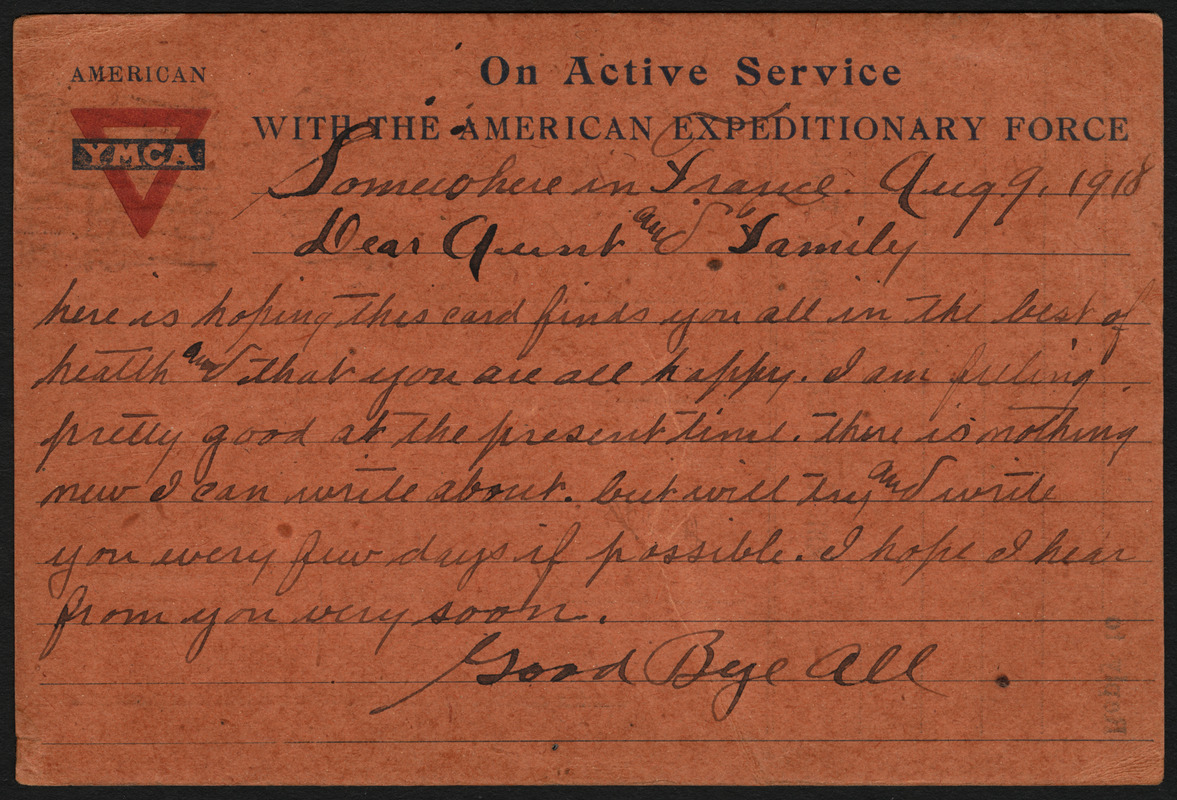 AMERICAN
YMCA
On Active Service
WITH THE AMERICAN EXPEDITIONARY FORCE
Somewhere in France. Aug 9, 1918
Dear Aunt and Family
here is hoping this card finds you all in the best of
health and that you are all happy. I am feeling
pretty good at the present time. There is nothing
new I can write about. but will try and write
you every few days if possible. I hope I hear
from you very soon.
Good Bye All